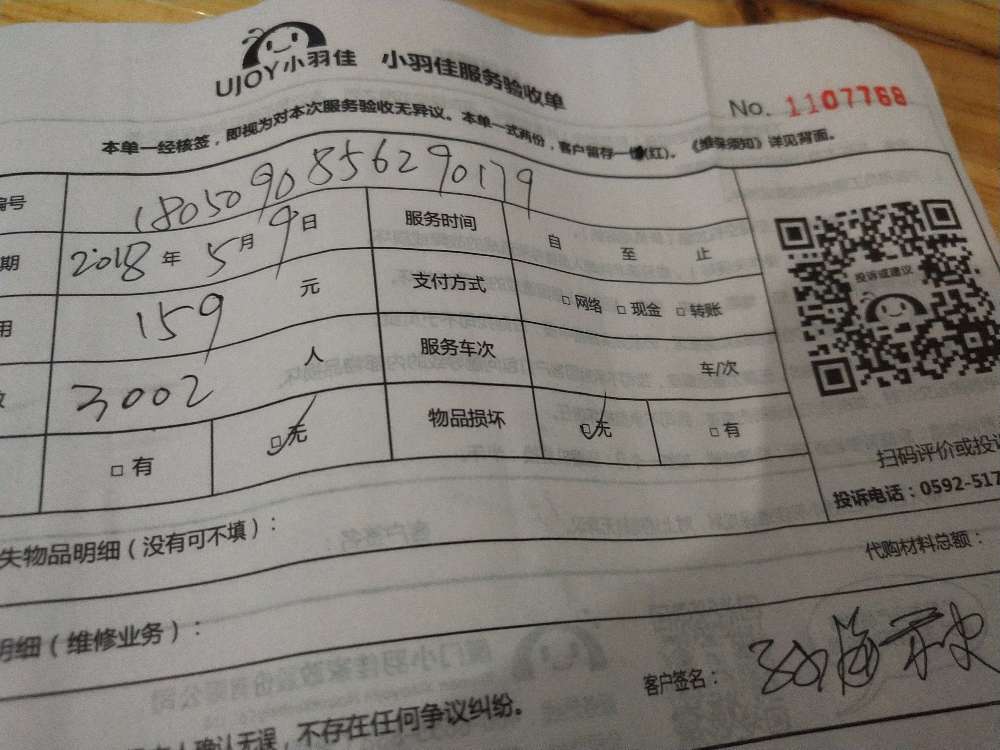 UJOY小羽佳 小羽佳服务验收单
No. 1107768
本单一经核签，即视为对本次服务验收无异议。本单一式两份，客户留存一联(红)。《维保须知》详见背面。
编号 1805090856290179
期 2018年5月9日 服务时间 自 至 止
用 159 元 支付方式 □网络 □现金 □转账
数 3002 人 服务车次 车/次
□有 □无 物品损坏 □无 □有
投诉或建议
扫码评价或投诉
投诉电话：0592-517
失物品明细（没有可不填）：
代购材料总额：
明细（维修业务）：
客户签名：
人确认无误，不存在任何争议纠纷。